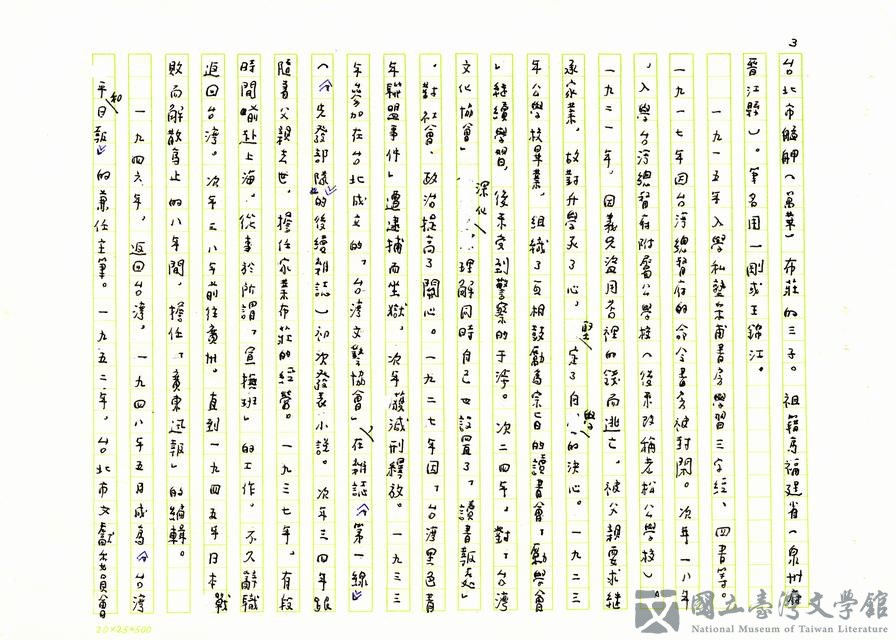 3
台北市艋舺（萬華）布莊的三子。祖籍為福建省（泉州府
晋江縣）。筆名用一剛或王錦江。
一九一五年入學私塾茱甫書房學習三字經、四書等。
一九一七年因台湾總督府的命令書房被封閉。次年一八年
，入學台湾總督府附屬公學校（後來改稱老松公學校）。
一九二一年。因義兄盜用店裡的錢而逃亡，被父親要求繼
承家業，故對升學死了心，堅定了自學的決心。一九二三
年公學校畢業，組織了互相鼓勵為宗旨的讀書會「勵學會
」繼續學習，後来受到警察的干涉。次二四年，對「台湾
文化協會」深化理解同時自己也設置了「讀書報處」
，對社會、政治提高了關心。一九二七年因「台湾黑色青
年聯盟事件」遭逮捕而坐獄，次年獲減刑釋放。一九三三
年參加在台北成立的「台湾文藝協會」，在雜誌《第一線》
（《先發部隊》的後續雜誌）初次發表小説。次年三四年跟
隨著父親去世，擔任家業布莊的經營。一九三七年，有段
時間前赴上海，從事於所謂「宣撫班」的工作。不久辭職
返回台湾。次年三八年前往廣州。直到一九四五年日本戰
敗而解散為止的八年間，擔任「廣東迅報」的編輯。
一九四六年，返回台湾，一九四八年五月成為《台湾
和平日報》的兼任主筆。一九五二年，台北市文獻委員會
20×25=500
國立臺灣文學館
National Museum of Taiwan Literature